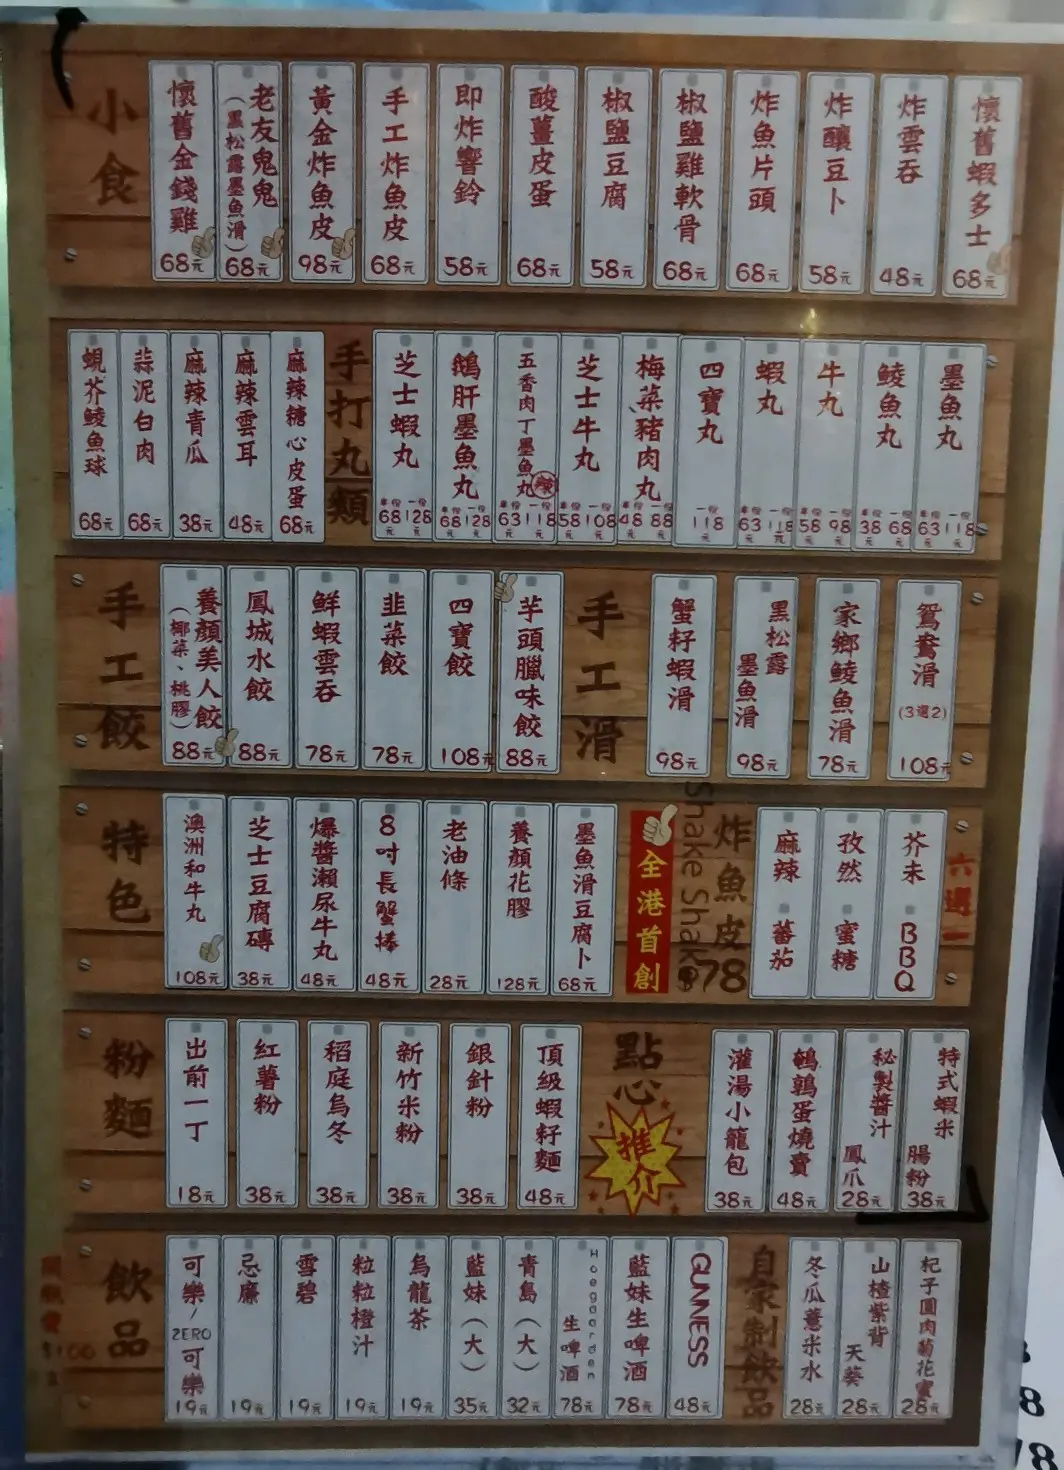 小食
懷舊金錢雞 68元
老友鬼鬼(黑松露墨魚滑) 68元
黃金炸魚皮 98元
手工炸魚皮 68元
即炸響鈴 58元
酸薑皮蛋 68元
椒鹽豆腐 58元
椒鹽雞軟骨 68元
炸魚片頭 68元
炸釀豆卜 58元
炸雲吞 48元
懷舊蝦多士 68元
蜆芥鯪魚球 68元
蒜泥白肉 68元
麻辣青瓜 38元
麻辣雲耳 48元
麻辣糖心皮蛋 68元
手打丸類
芝士蝦丸 半份68元 一份128元
鵝肝墨魚丸 半份68元 一份128元
五香肉丁墨魚丸 辣 半份63元 一份118元
芝士牛丸 半份58元 一份108元
梅菜豬肉丸 半份48元 一份88元
四寶丸 一份118元
蝦丸 半份63元 一份118元
牛丸 半份58元 一份98元
鯪魚丸 半份38元 一份68元
墨魚丸 半份63元 一份118元
手工餃
養顏美人餃(椰菜、桃膠) 88元
鳳城水餃 88元
鮮蝦雲吞 78元
韭菜餃 78元
四寶餃 108元
芋頭臘味餃 88元
手工滑
蟹籽蝦滑 98元
黑松露墨魚滑 98元
家鄉鯪魚滑 78元
鴛鴦滑(3選2) 108元
特色
澳洲和牛丸 108元
芝士豆腐磚 38元
爆醬瀨尿牛丸 48元
8吋長蟹棒 48元
老油條 28元
養顏花膠 128元
墨魚滑豆腐卜 68元
全港首創
Shake Shake
炸魚皮 $78
麻辣 蕃茄
孜然 蜜糖
芥末 BBQ
六選一
粉麵
出前一丁 18元
紅薯粉 38元
稻庭烏冬 38元
新竹米粉 38元
銀針粉 38元
頂級蝦籽麵 48元
點心
推介
灌湯小籠包 38元
鵪鶉蛋燒賣 48元
秘製醬汁鳳爪 28元
特式蝦米腸粉 38元
飲品
可樂/ZERO可樂 19元
忌廉 19元
雪碧 19元
粒粒橙汁 19元
烏龍茶 19元
藍妹(大) 35元
青島(大) 32元
Hoegaarden生啤酒 78元
藍妹生啤酒 78元
GUNNESS 48元
自家制飲品
冬瓜薏米水 28元
山楂紫背天葵 28元
杞子圓肉菊花蜜 28元
$100